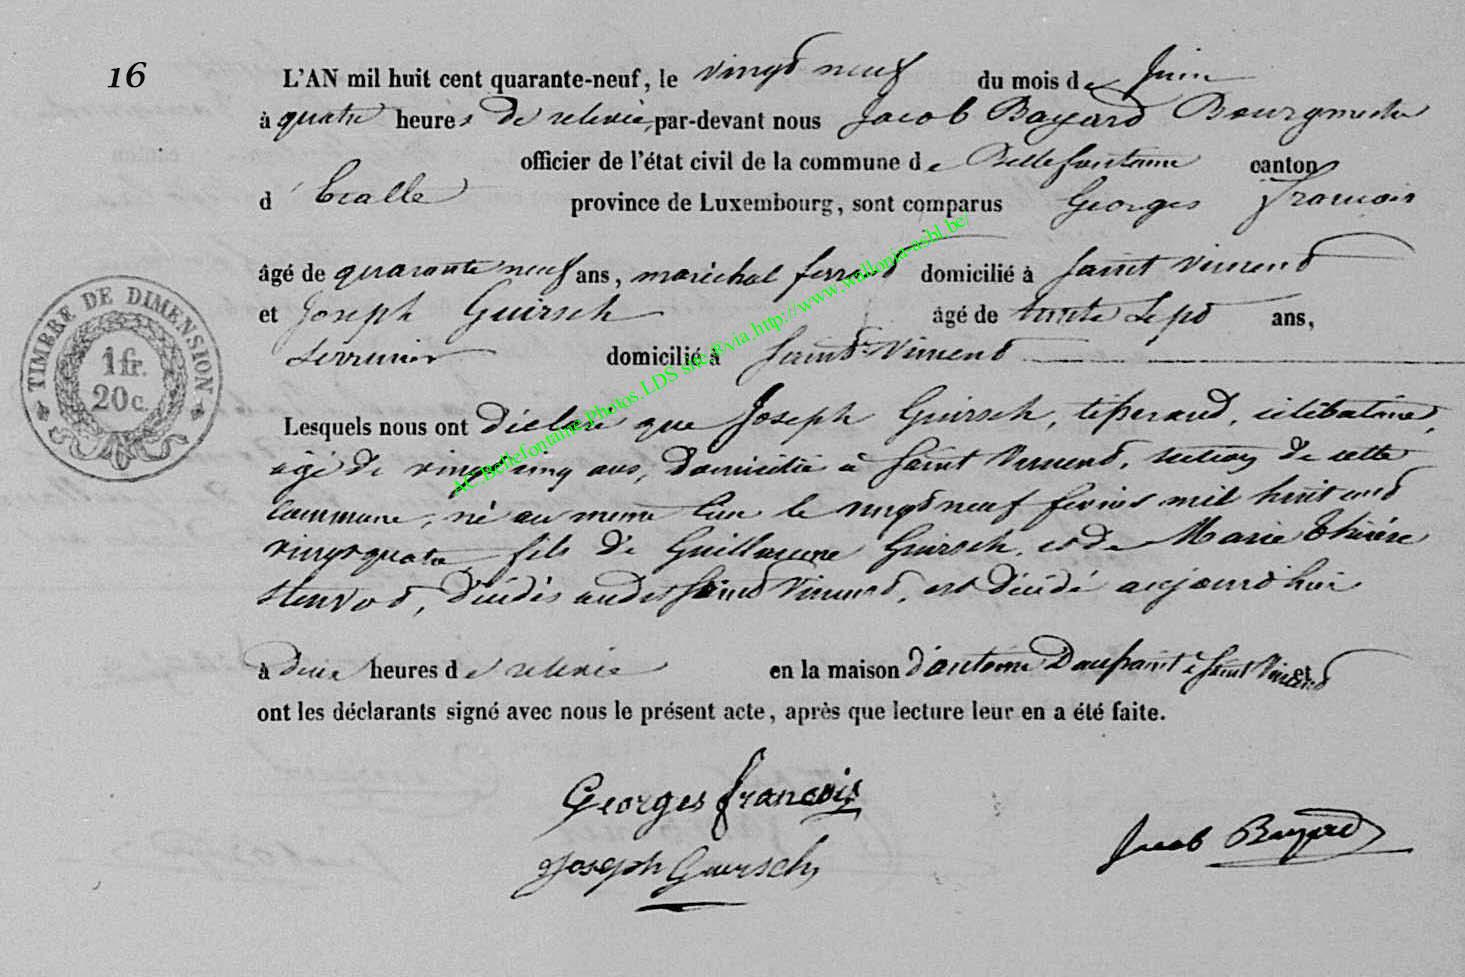 16
L'AN mil huit cent quarante-neuf, le vingt neuf du mois de Juin
à quatre heures de relevée, par-devant nous Jacob Bayard Bourgmestre
officier de l'état civil de la commune de Bellefontaine canton
d'Etalle province de Luxembourg, sont comparus Georges François
âgé de quarante neuf ans, maréchal ferrand domicilié à Saint Vincend
et Joseph Guirsch âgé de trente sept ans,
serrurier domicilié à Saind-Vincend
Lesquels nous ont déclaré que Joseph Guirsch, célibataire,
âgé de vingt cinq ans, domicilié à Saint Vincend, section de cette
Commune, né au même lieu le vingt neuf fevrier mil huit cend
vingt quatre, fils de Guillaume Guirsch, et de Marie Thérèse
décédés audit Saind Vincend, est décédé aujourd'hui
à deux heures de relevée en la maison d'antoine Daupaint à Saint Vincend et
ont les déclarants signé avec nous le présent acte, après que lecture leur en a été faite.
Georges francois
Joseph Guirsch
Jacob Bayard
TIMBRE DE DIMENSION
1 fr.
20 c.
AC.Bellefontaine.Photos.LDS site ®via http://www.wallonia-asbl.be/